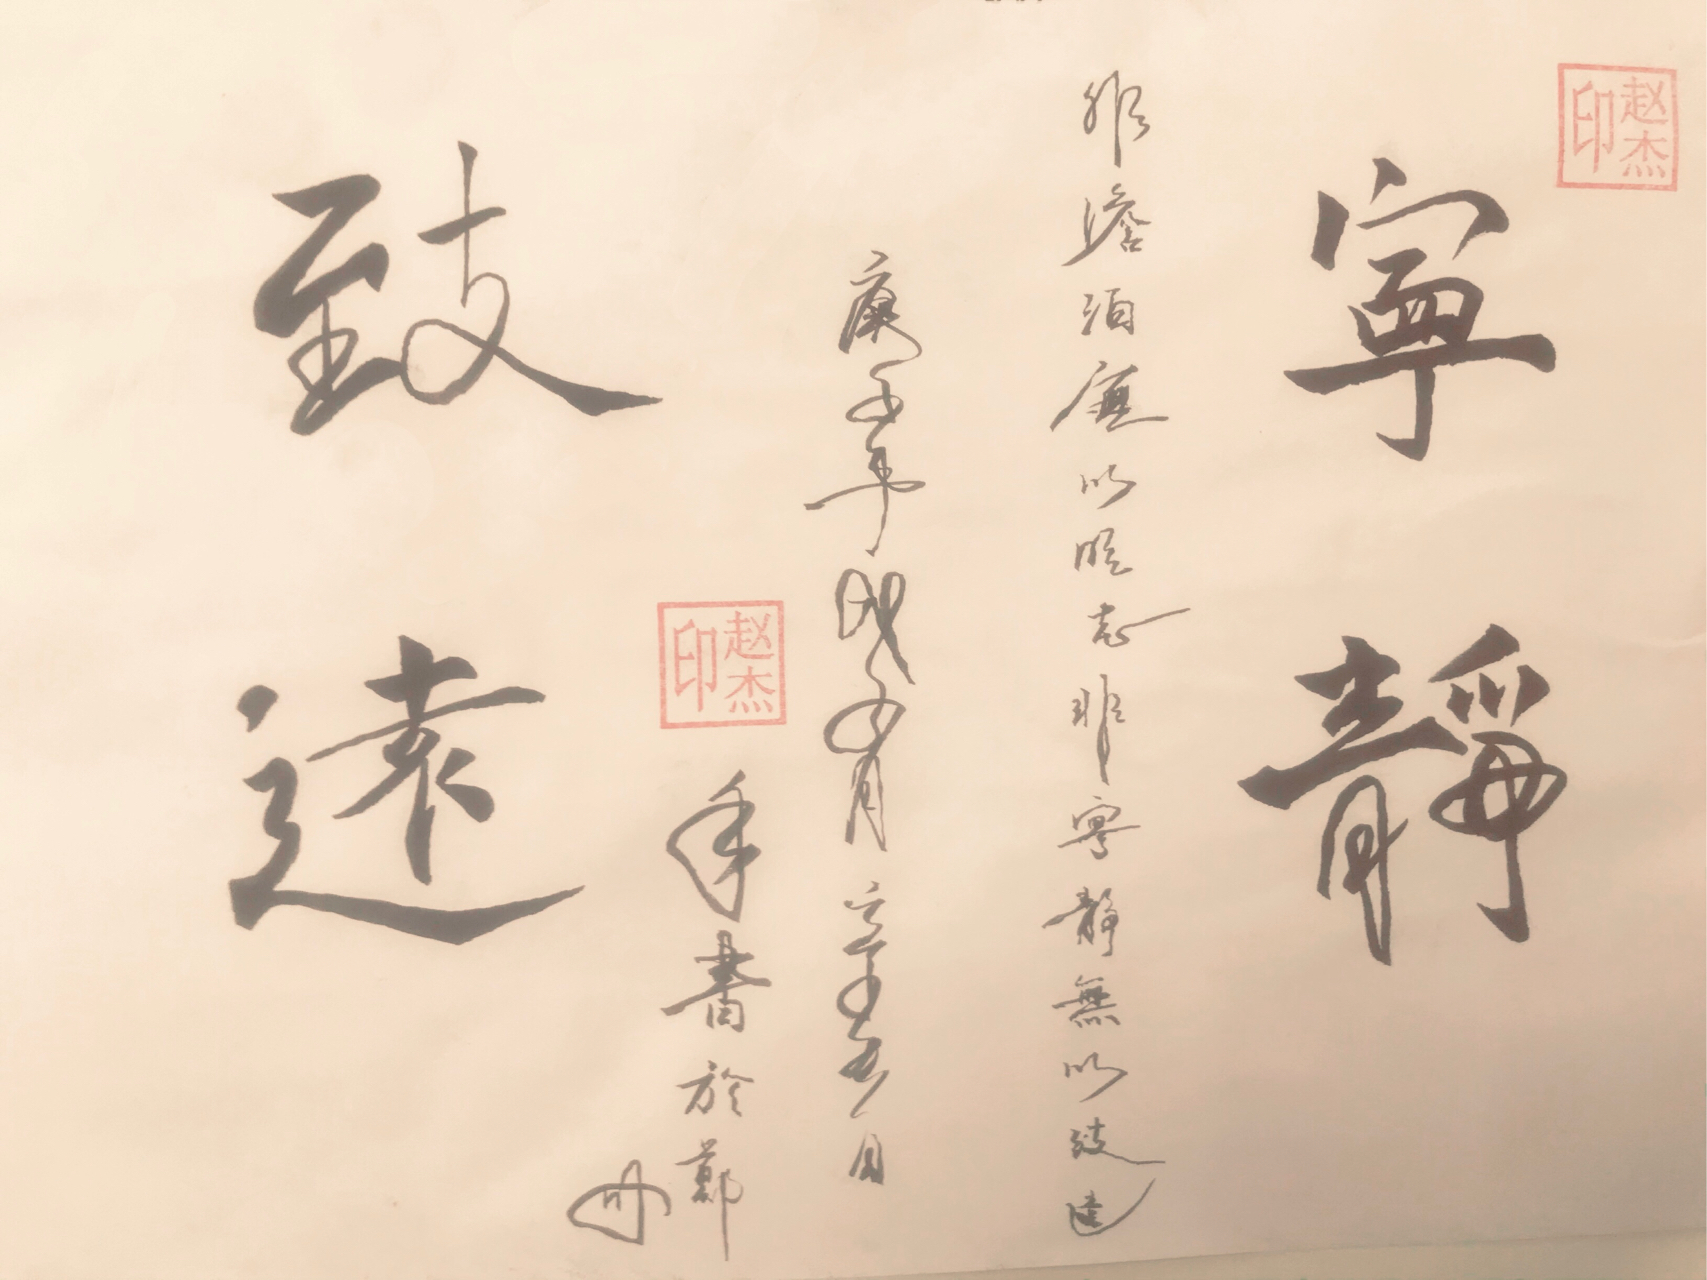 赵杰印
寧靜
非澹泊無以明志非寧靜無以致遠
庚子年戊子月 日
赵杰印
書於鄭
州
致遠